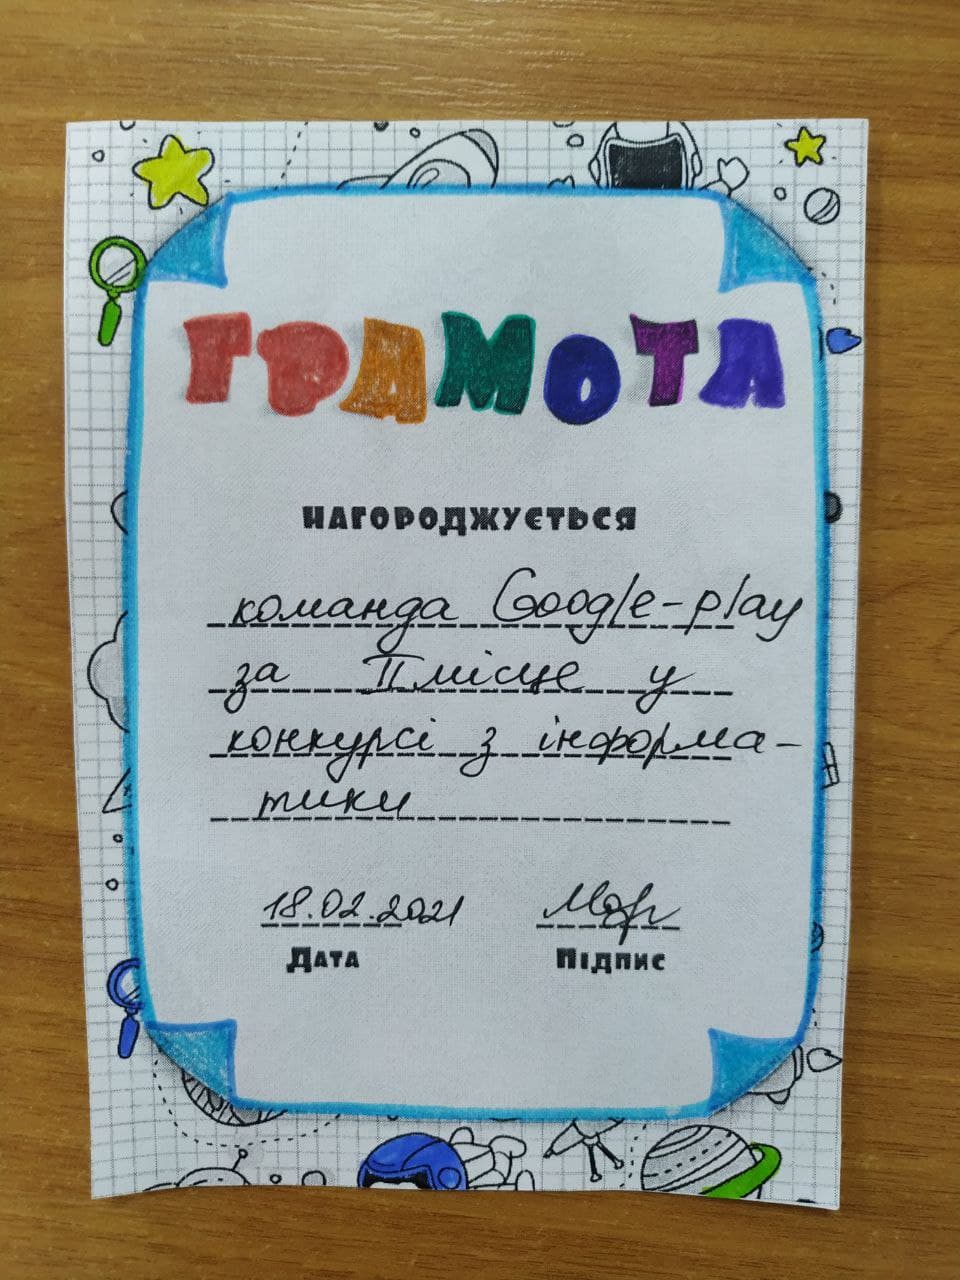 ГРАМОТА
НАГОРОДЖУЄТЬСЯ
команда Google-play
за II місце у
конкурсі з інформа-
тики
18.02.2021
Дата Підпис